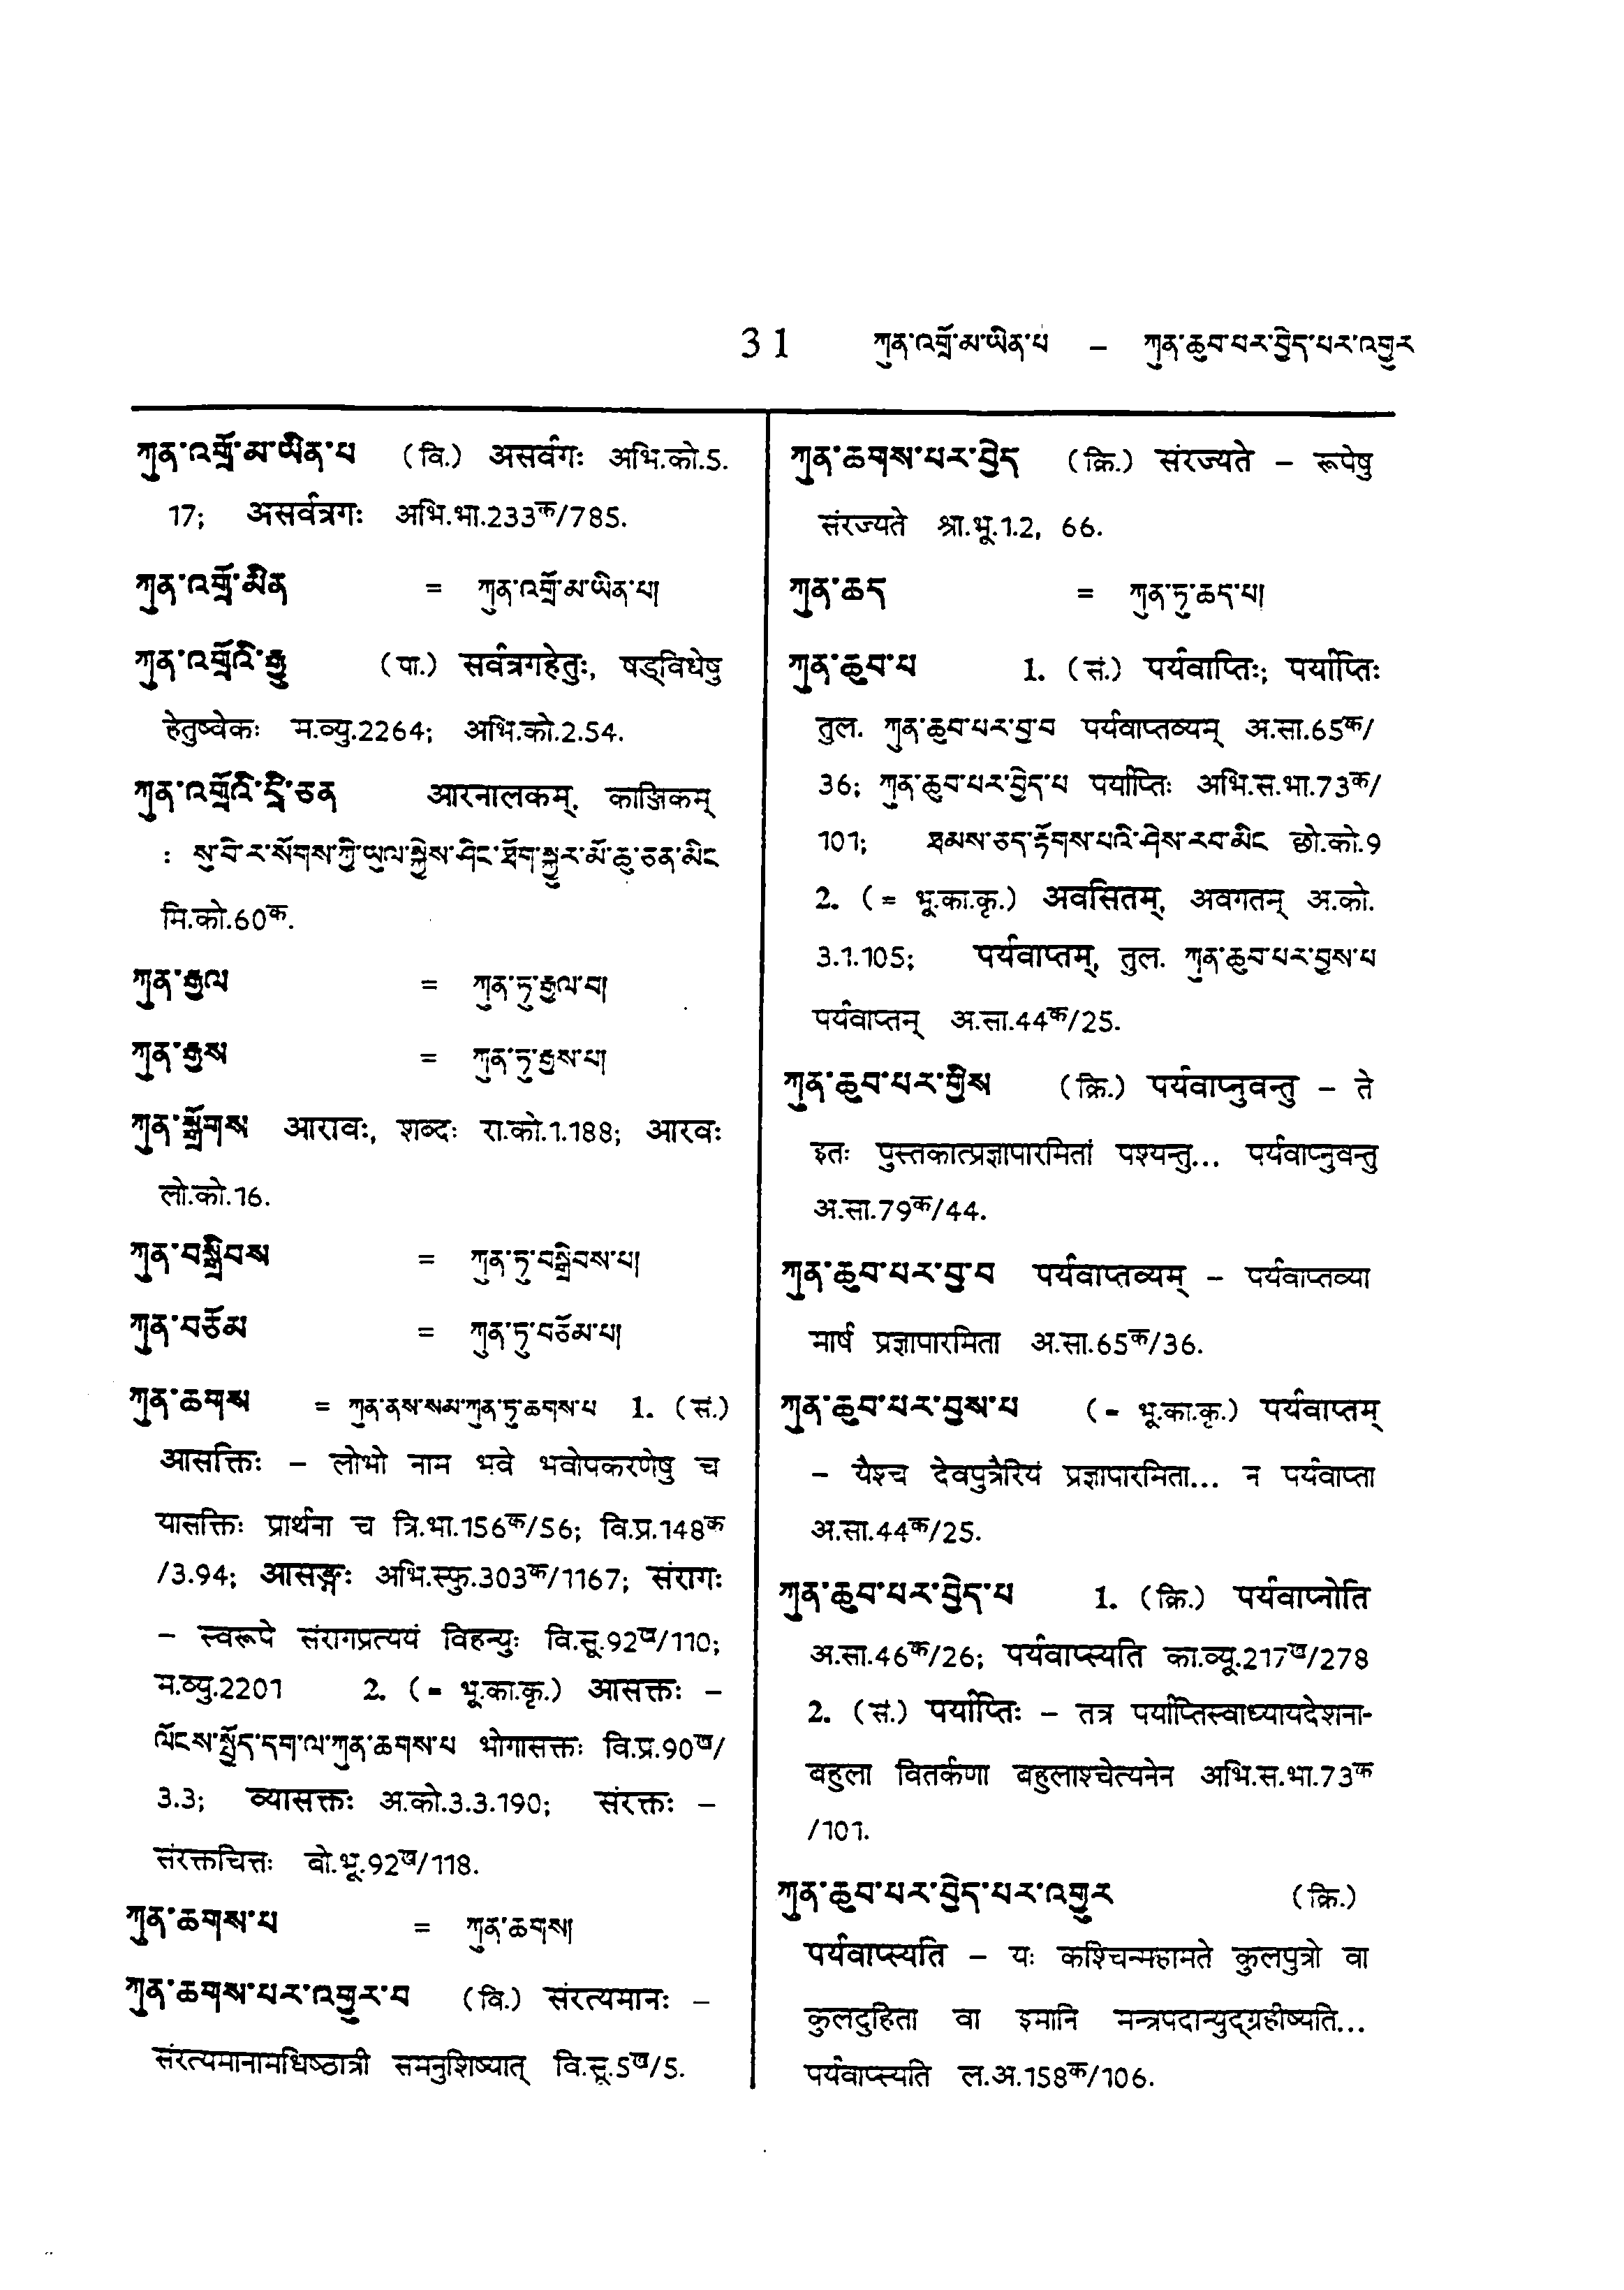 31 ཀུན་འགྲོ་མ་ཡིན་པ – ཀུན་ཆུབ་པར་བྱེད་པར་འགྱུར
ཀུན་འགྲོ་མ་ཡིན་པ (वि.) असर्वगः अभि.को.5.
17; असर्वत्रगः अभि.भा.233क/785.
ཀུན་འགྲོ་མིན = ཀུན་འགྲོ་མ་ཡིན་པ།
ཀུན་འགྲོའི་རྒྱུ (पा.) सर्वत्रगहेतुः, षड्विधेषु
हेतुष्वेकः म.व्यु.2264; अभि.को.2.54.
ཀུན་འགྲོའི་དྲི་ཅན आरनालकम्, काञ्जिकम्
: སུ་བི་ར་སོགས་ཀྱི་ཡུལ་སྐྱེས་ཤིང་ཐོག་སྐྱུར་མོ་ཆུ་ཅན་མིང
मि.को.60क.
ཀུན་རྒྱལ = ཀུན་ཏུ་རྒྱལ་བ།
ཀུན་རྒྱས = ཀུན་ཏུ་རྒྱས་པ།
ཀུན་སྒྲོགས आरावः, शब्दः रा.को.1.188; आरवः
लो.को.16.
ཀུན་བསྒྲིབས = ཀུན་ཏུ་བསྒྲིབས་པ།
ཀུན་བཅོམ = ཀུན་ཏུ་བཅོམ་པ།
ཀུན་ཆགས = ཀུན་ནས་སམ་ཀུན་ཏུ་ཆགས་པ 1. (सं.)
आसक्तिः – लोभो नाम भवे भवोपकरणेषु च
यासक्तिः प्रार्थना च त्रि.भा.156क/56; वि.प्र.148क
/3.94; आसङ्गः अभि.स्फु.303क/1167; संरागः
– स्वरूपे संरागप्रत्ययं विहन्युः वि.सू.92ख/110;
म.व्यु.2201 2. (= भू.का.कृ.) आसक्तः –
ལོངས་སྤྱོད་དག་ལ་ཀུན་ཆགས་པ भोगासक्तः वि.प्र.90ख/
3.3; व्यासक्तः अ.को.3.3.190; संरक्तः –
संरक्तचित्तः बो.भू.92ख/118.
ཀུན་ཆགས་པ = ཀུན་ཆགས།
ཀུན་ཆགས་པར་འགྱུར་བ (वि.) संरत्यमानः –
संरत्यमानामधिष्ठात्री समनुशिष्यात् वि.सू.5ख/5.
ཀུན་ཆགས་པར་བྱེད (क्रि.) संरज्यते – रूपेषु
संरज्यते श्रा.भू.1.2, 66.
ཀུན་ཆད = ཀུན་ཏུ་ཆད་པ།
ཀུན་ཆུབ་པ 1. (सं.) पर्यवाप्तिः; पर्याप्तिः
तुल. ཀུན་ཆུབ་པར་བྱ་བ पर्यवाप्तव्यम् अ.सा.65क/
36; ཀུན་ཆུབ་པར་བྱེད་པ पर्याप्तिः अभि.स.भा.73क/
101; ཐམས་ཅད་རྟོགས་པའི་ཤེས་རབ་མིང छो.को.9
2. (= भू.का.कृ.) अवसितम्, अवगतम् अ.को.
3.1.105; पर्यवाप्तम्, तुल. ཀུན་ཆུབ་པར་བྱས་པ
पर्यवाप्तम् अ.सा.44क/25.
ཀུན་ཆུབ་པར་གྱིས (क्रि.) पर्यवाप्नुवन्तु – ते
इतः पुस्तकात्प्रज्ञापारमितां पश्यन्तु... पर्यवाप्नुवन्तु
अ.सा.79क/44.
ཀུན་ཆུབ་པར་བྱ་བ पर्यवाप्तव्यम् – पर्यवाप्तव्या
मार्ष प्रज्ञापारमिता अ.सा.65क/36.
ཀུན་ཆུབ་པར་བྱས་པ (= भू.का.कृ.) पर्यवाप्तम्
– यैश्च देवपुत्रैरियं प्रज्ञापारमिता... न पर्यवाप्ता
अ.सा.44क/25.
ཀུན་ཆུབ་པར་བྱེད་པ 1. (क्रि.) पर्यवाप्नोति
अ.सा.46क/26; पर्यवाप्स्यति का.व्यू.217ख/278
2. (सं.) पर्याप्तिः – तत्र पर्याप्तिस्वाध्यायदेशना-
बहुला वितर्कणा बहुलाश्चेत्यनेन अभि.स.भा.73क
/101.
ཀུན་ཆུབ་པར་བྱེད་པར་འགྱུར (क्रि.)
पर्यवाप्स्यति – यः कश्चिन्महामते कुलपुत्रो वा
कुलदुहिता वा इमानि मन्त्रपदान्युद्ग्रहीष्यति...
पर्यवाप्स्यति ल.अ.158क/106.